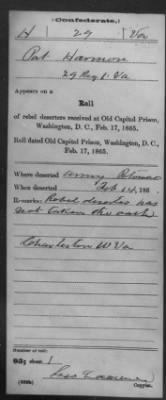 (Confederate.)
H 29 Va
Pat Harmon
29 Reg't Va
Appears on a
Roll
of rebel deserters received at Old Capitol Prison,
Washington, D. C., Feb. 17, 1865.
Roll dated Old Capitol Prison, Washington, D. C.,
Feb. 17, 1865.
Where deserted Army Potomac
When deserted Feb 14, 186
Remarks: Rebel deserter has
not taken the oath
Charleston W Va
Number of roll:
sheet 1
Copyist.